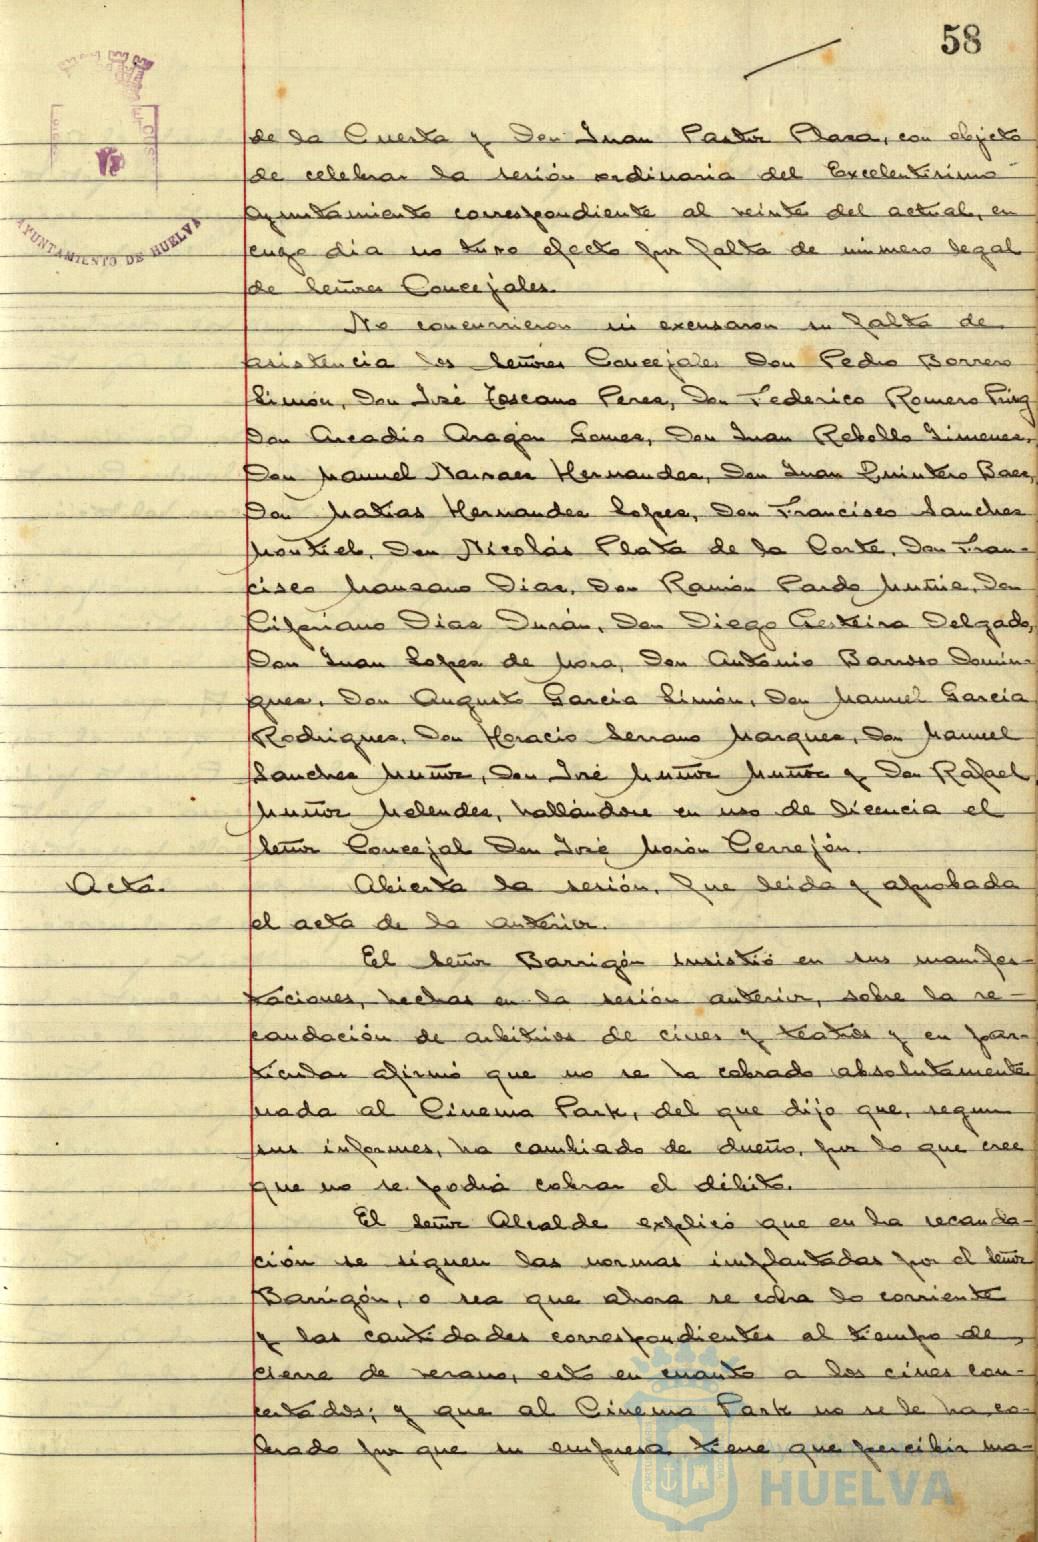 58
AYUNTAMIENTO DE HUELVA
de la Cuesta y Don Juan Pastor Plaza, con objeto
de celebrar la sesión ordinaria del Excelentísimo
Ayuntamiento correspondiente al veinte del actual, en
cuyo dia no tuvo efecto por falta de número legal
de Señores Concejales.
No concurrieron ni excusaron su falta de
asistencia los Señores Concejales Don Pedro Borrero
Limón, Don José Toscano Perez, Don Federico Romero Puig
Don Arcadio Aragón Gomez, Don Juan Rebollo Jimenez,
Don Manuel Narvaez Hernandez, Don Juan Quintero Baez,
Don Matias Hernandez Lopez, Don Francisco Sanchez
Montiel, Don Nicolás Plata de la Corte, Don Fran-
cisco Manzano Diaz, Don Ramón Pardo Muñiz, Don
Cipriano Diaz Durán, Don Diego Delgado,
Don Juan Lopez de Mora, Don Antonio Barroso Domin-
guez, Don Augusto Garcia Limón, Don Manuel Garcia
Rodriguez, Don Horacio Serrano Marquez, Don Manuel
Sanchez Muñoz, Don José Muñoz Muñoz y Don Rafael
Muñoz Melendez, hallándose en uso de licencia el
Señor Concejal Don José Morón Cerrejón.
Acta. Abierta la sesión, fue leida y aprobada
el acta de la anterior.
El Señor Barrigón insistió en sus manifes-
taciones, hechas en la sesión anterior, sobre la re-
caudación de arbitrios de cines y teatros y en par-
ticular afirmó que no se ha cobrado absolutamente
nada al Cinema Park, del que dijo que, segun
sus informes, ha cambiado de dueño, por lo que cree
que no se podrá cobrar el débito.
El Señor Alcalde explicó que en la recauda-
ción se siguen las normas implantadas por el Señor
Barrigón, o sea que ahora se cobra lo corriente
y las cantidades correspondientes al tiempo de
cierre de verano, esto en cuanto a los cines con-
certados; y que al Cinema Park no se le ha co-
brado por que su empresa tiene que percibir ma-
HUELVA